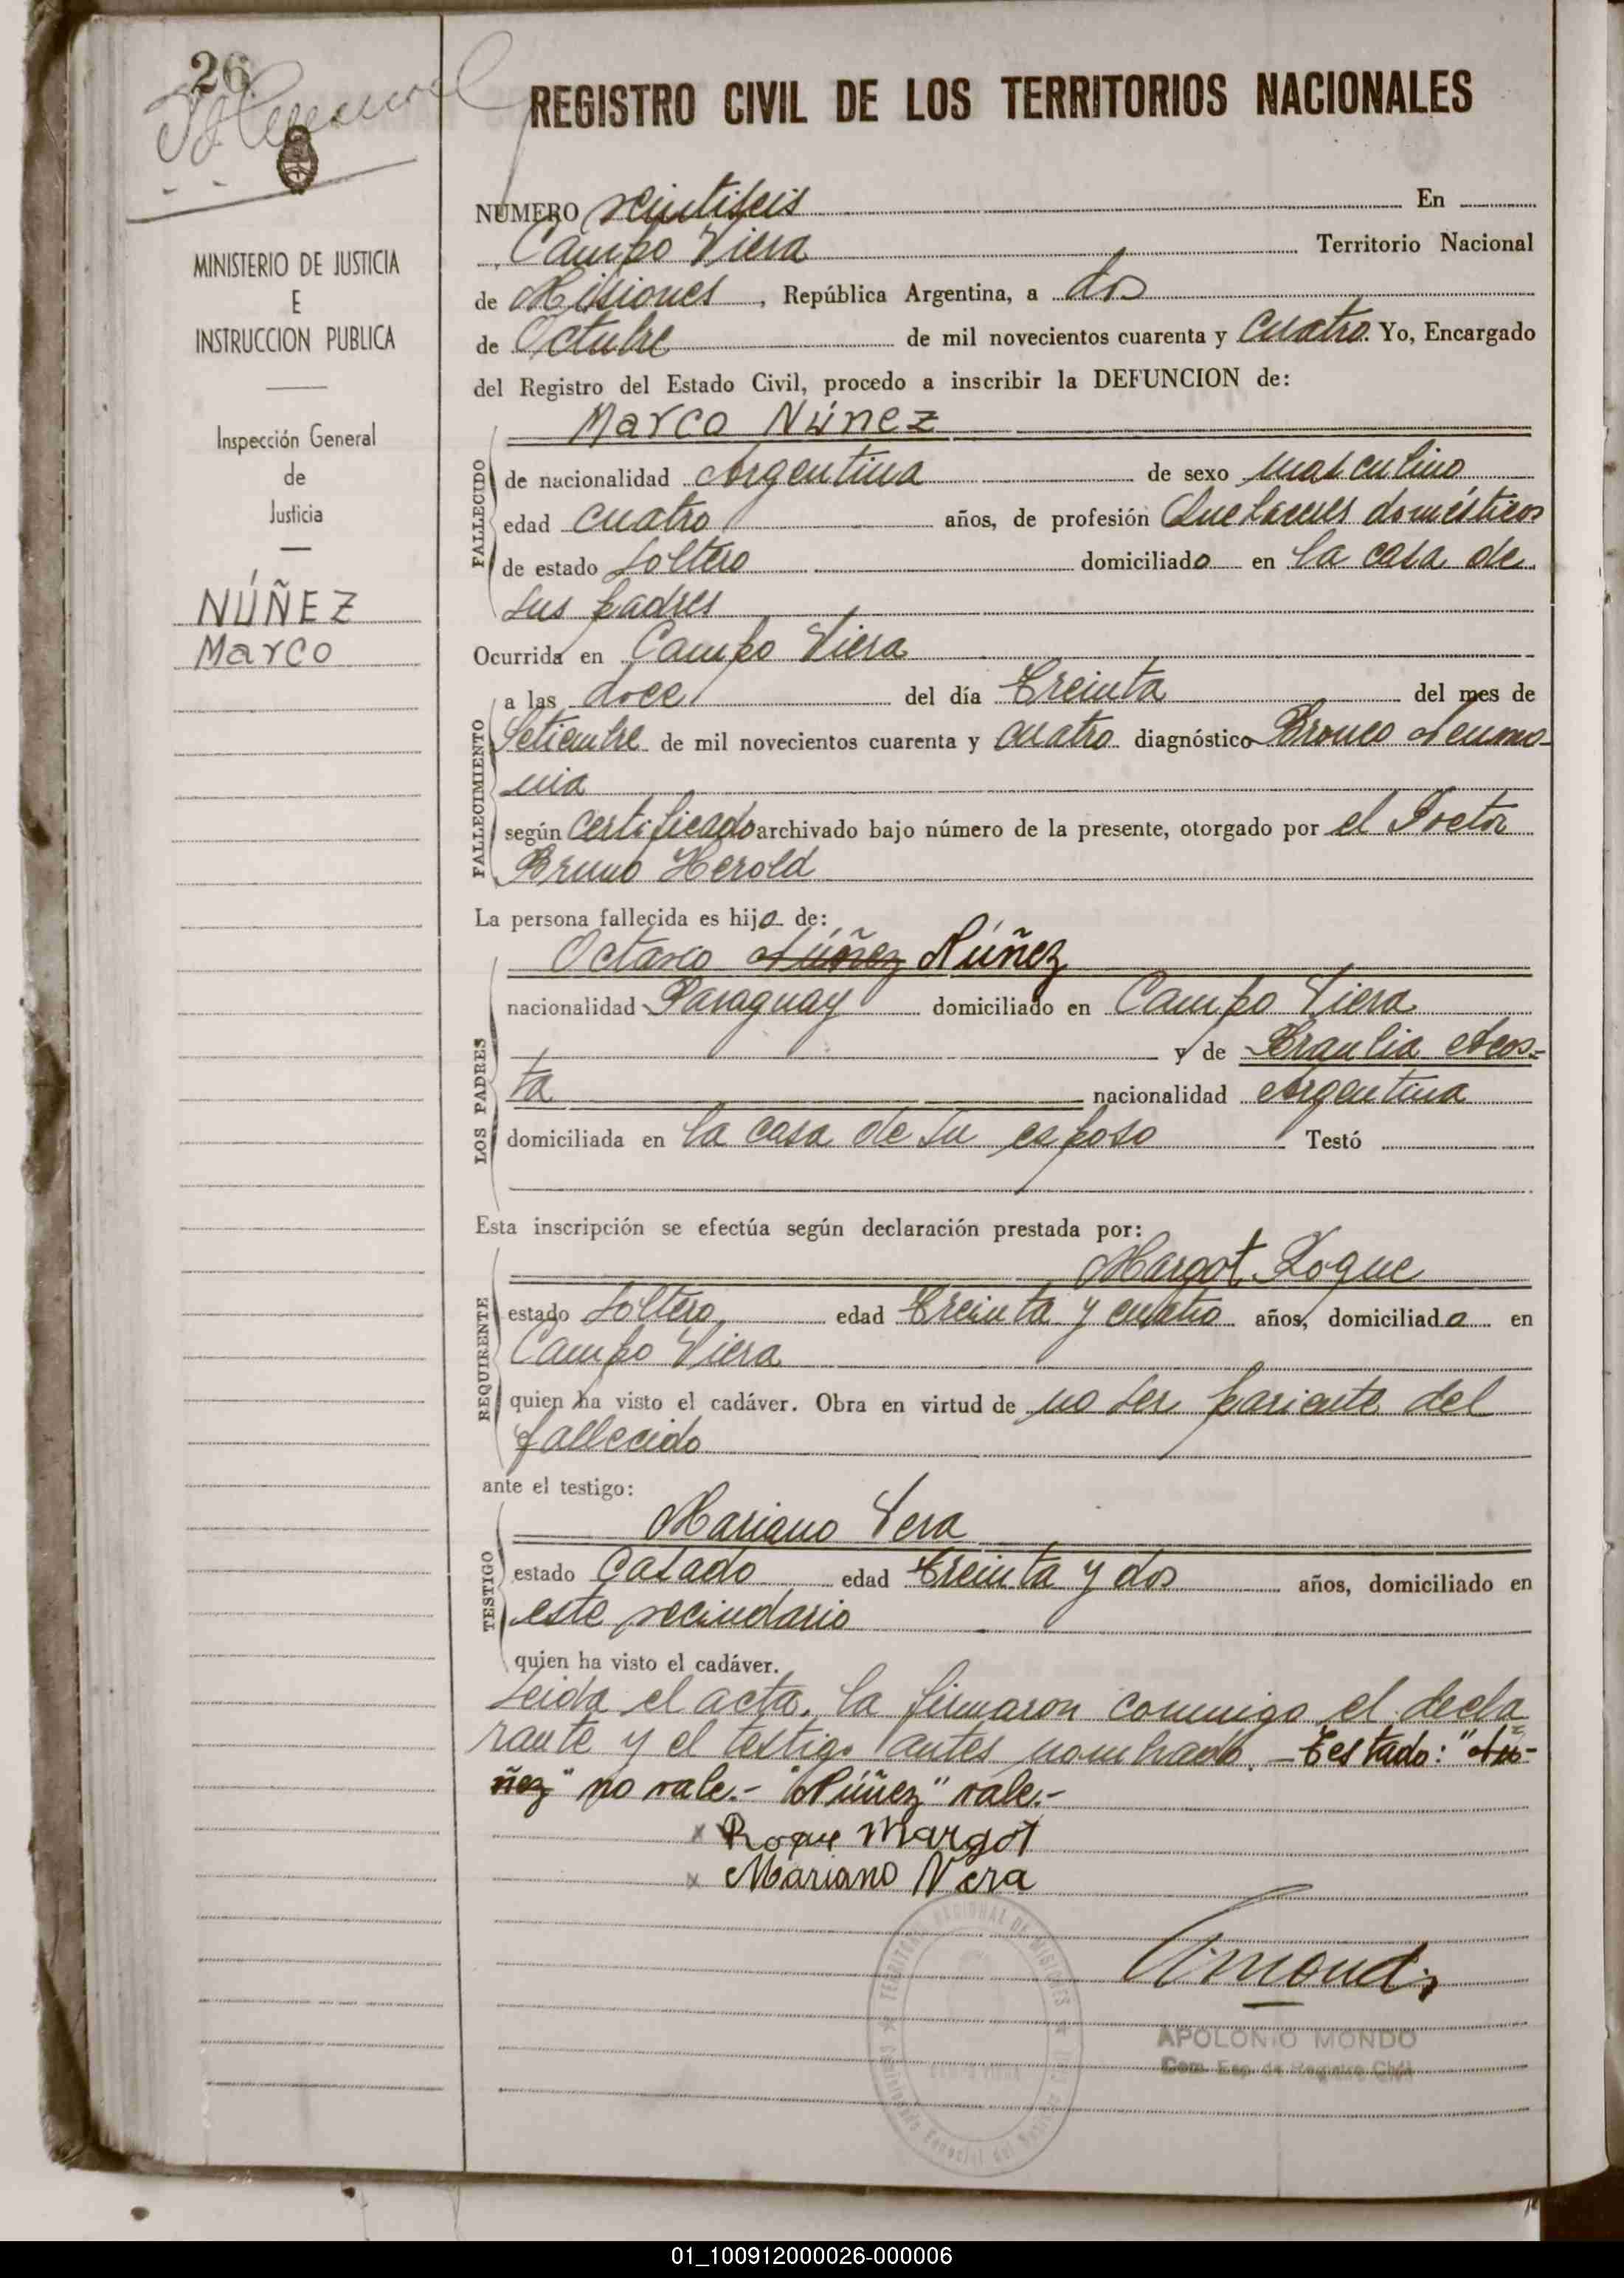 26
REGISTRO CIVIL DE LOS TERRITORIOS NACIONALES
MINISTERIO DE JUSTICIA
E
INSTRUCCION PUBLICA
Inspección General
de
Justicia
NÚÑEZ
Marco
NUMERO veintiseis En
Campo Viera Territorio Nacional
de Misiones, República Argentina, a dos
de Octubre de mil novecientos cuarenta y cuatro. Yo, Encargado
del Registro del Estado Civil, procedo a inscribir la DEFUNCION de:
Marco Núnez
FALLECIDO
de nacionalidad Argentina de sexo masculino
edad cuatro años, de profesión Quehaceres domésticos
de estado Soltero domiciliado en la casa de
sus padres
Ocurrida en Campo Viera
FALLECIMIENTO
a las doce del día treinta del mes de
Setiembre de mil novecientos cuarenta y cuatro diagnóstico Bronco Neumo-
nia
según certificado archivado bajo número de la presente, otorgado por el Doctor
Bruno Herold
La persona fallecida es hijo de:
LOS PADRES
Núñez Núñez
nacionalidad Paraguay domiciliado en Campo Viera
y de Braulia Acos=
ta nacionalidad Argentina
domiciliada en la casa de su esposo Testó
Esta inscripción se efectúa según declaración prestada por:
REQUIRENTE
Margot Roque
estado Soltero edad treinta y cuatro años, domiciliado en
Campo Viera
quien ha visto el cadáver. Obra en virtud de no ser pariente del
fallecido
ante el testigo:
TESTIGO
Mariano Vera
estado Casado edad treinta y dos años, domiciliado en
este vecindario
quien ha visto el cadáver.
Leida el acta, la firmaron conmigo el decla
rante y el testigo antes nombrado. - Testado: "Nú-
ñez" no vale.- "Núñez" vale.-
x Roque Margot
x Mariano Vera
TERRITORIO NACIONAL DE MISIONES
APOLONIO MONDO
01_100912000026-000006